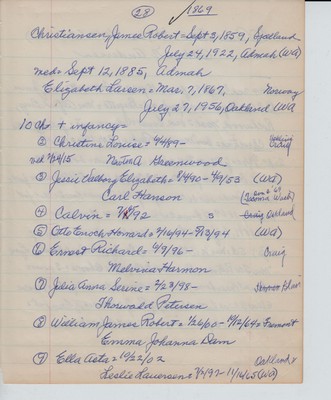 (28) ✓ 1869
Christiansen, James Robert = Sept 3, 1859, Sjaelland
July 24, 1922, Admah (WA)
med = Sept 12, 1885, Admah
Elizabeth Larsen = Mar. 7, 1867, Norway
July 27, 1956, Oakland WA
10 Chr + infancy =
② Christine Louise = 4/4/89- Craig
md 2/24/15 Newton A Greenwood
③ Jessie Elizabeth = 8/4/90 - 4/9/53 (WA)
Carl Hanson (Tacoma Wash)
④ Calvin = 92 s Craig Oakland
⑤ Otto Enoch Howard = 2/16/94 - 8/13/94 (WA)
⑥ Ernest Richard = 6/9/96 - Craig
Melvina Harmon
⑦ Julia Anna Serine = 2/23/98 -
Thorwald Petersen
⑧ William James Robert = 1/26/00 - 10/12/64 = Fremont
Emma Johanna Dem
⑨ Ella Asta = 10/22/02 Oakland
Leslie Laverson = 97 - 11/16/65 (WA)